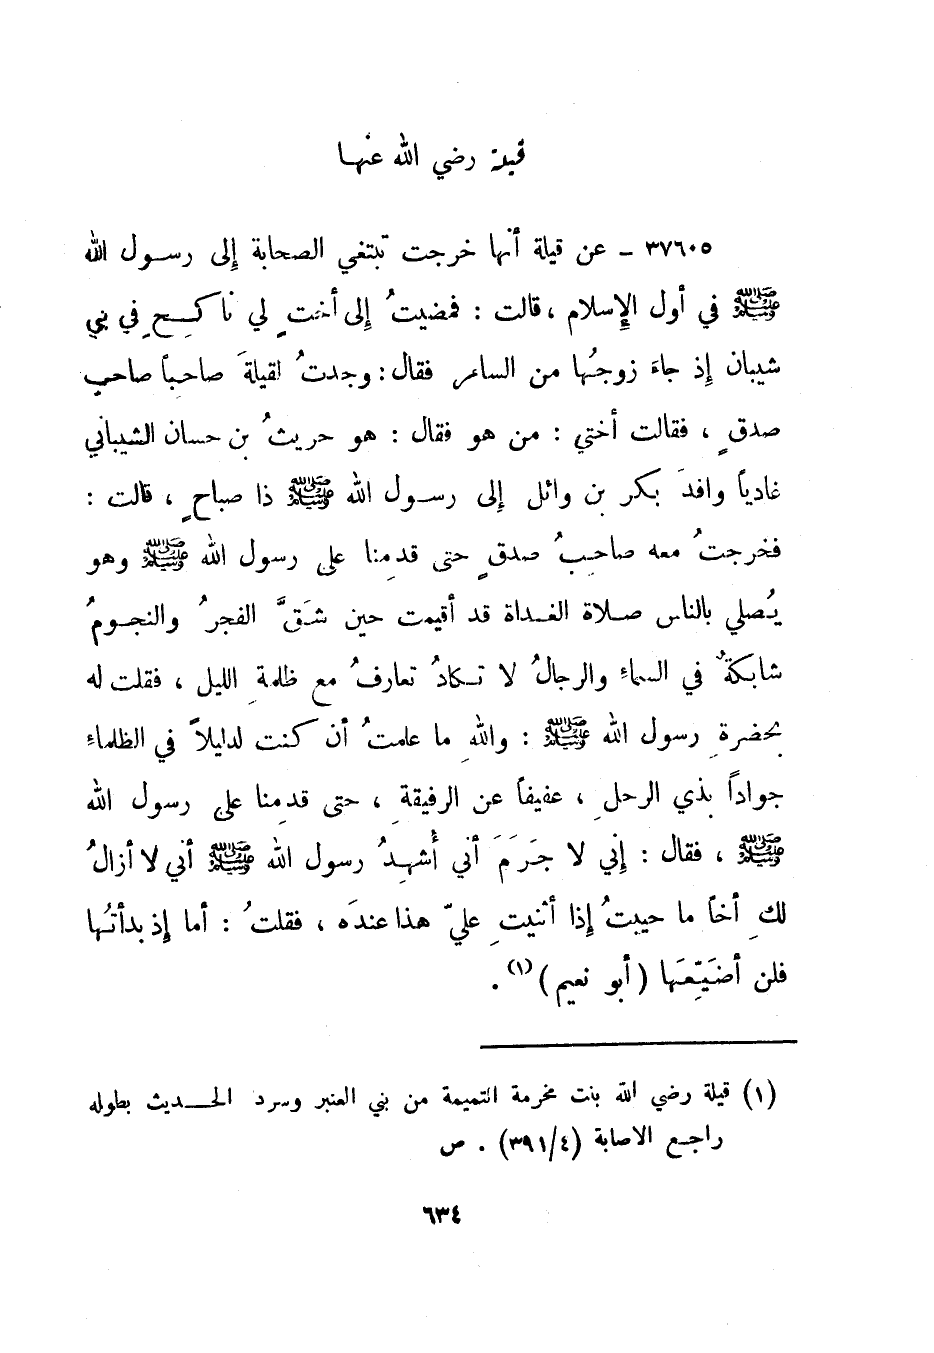 قيلة رضي الله عنها
٣٧٦٠٥ ـ عن قيلة أنها خرجت تبتغي الصحابة إلى رسول الله
ﷺ في أول الإسلام ، قالت : فمضيتُ إلى أختٍ لي ناكحٍ في بني
شيبان إذ جاءَ زوجُها من السامر فقال : وجدتُ لقيلةَ صاحباً صاحب
صدقٍ ، فقالت أختي : من هو فقال : هو حريثُ بن حسان الشيباني
غادياً وافدَ بكر بن وائل إلى رسول الله ﷺ ذا صباحٍ ، قالت :
فخرجتُ معه صاحبُ صدقٍ حتى قدمنا على رسول الله ﷺ وهو
يُصلي بالناس صلاة الغداة قد أقيمت حين شَقَّ الفجرُ والنجومُ
شابكةٌ في السماءِ والرجالُ لا تكادُ تعارفُ مع ظلمةِ الليل ، فقلت له
بحضرةِ رسول الله ﷺ : واللهِ ما علمتُ أن كنت لدليلاً في الظلماءِ
جواداً بذي الرحلِ ، عفيفاً عن الرفيقةِ ، حتى قدمنا على رسول الله
ﷺ ، فقال : إني لا جَرَمَ أني أُشهِدُ رسول الله ﷺ أني لا أزالُ
لكِ أخاً ما حييتُ إذا أثنيتِ عليّ هذا عندَه ، فقلتُ : أما إذ بدأتُها
فلن أضَيِّعَها ( أبو نعيم )(١) .
(١) قيلة رضي الله بنت مخرمة التميمة من بني العنبر وسرد الحديث بطوله
راجع الاصابة (٣٩١/٤) . ص
٦٣٤